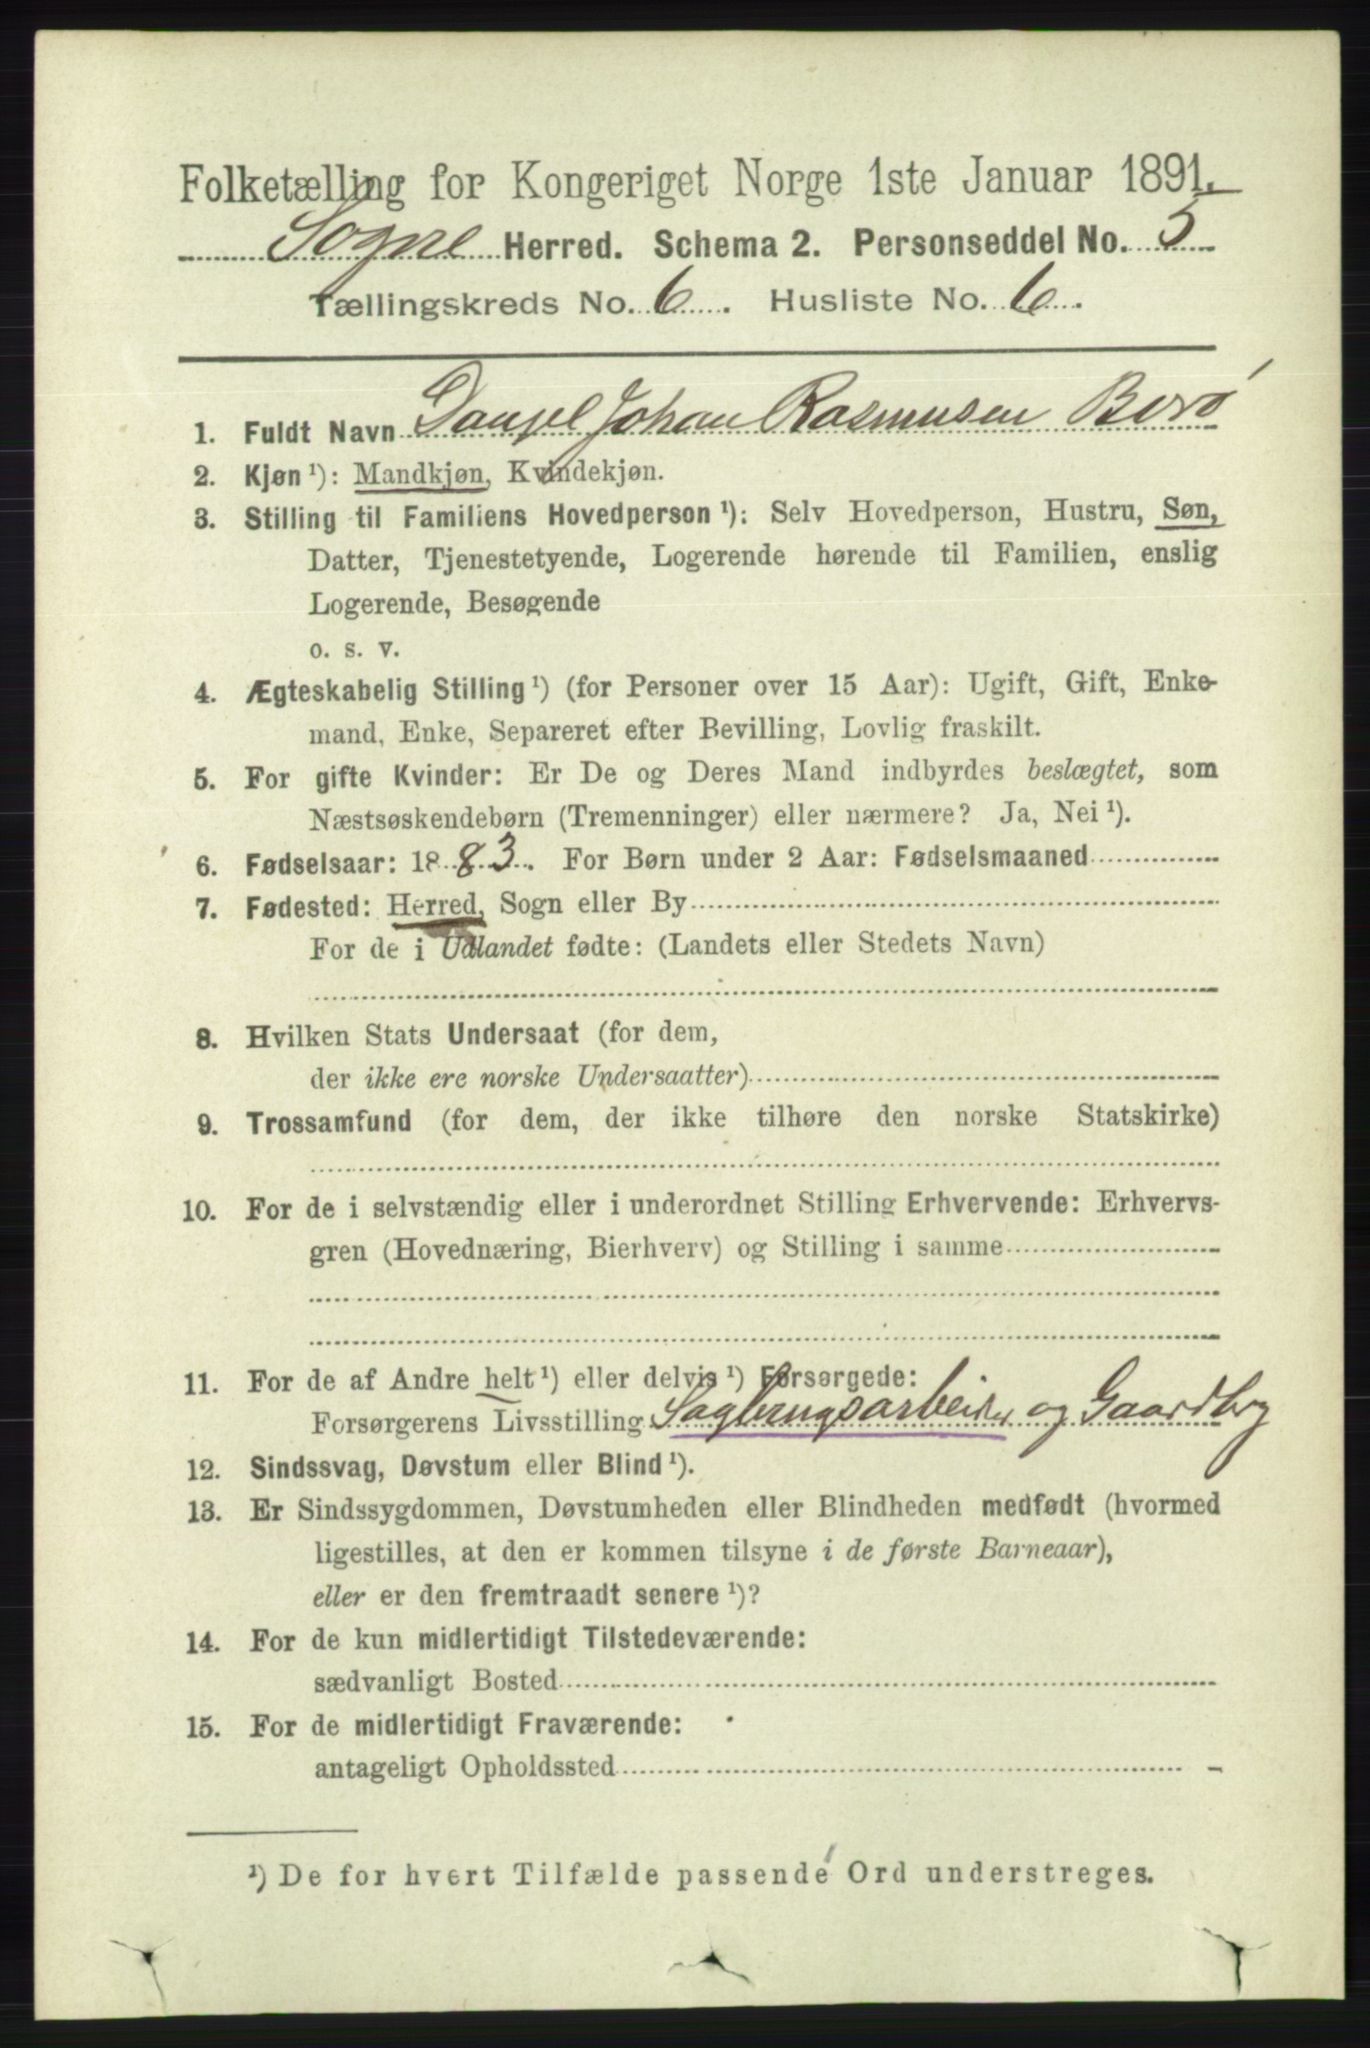 Folketælling for Kongeriget Norge 1ste Januar 1891.
Søgne Herred. Schema 2. Personseddel No. 5
Tællingskreds No. 6. Husliste No. 6.
1. Fuldt Navn Daniel Johan Rasmusen Borø
2. Kjøn ¹): Mandkjøn, Kvindekjøn.
3. Stilling til Familiens Hovedperson ¹): Selv Hovedperson, Hustru, Søn,
Datter, Tjenestetyende, Logerende hørende til Familien, enslig
Logerende, Besøgende
o. s. v.
4. Ægteskabelig Stilling ¹) (for Personer over 15 Aar): Ugift, Gift, Enke-
mand, Enke, Separeret efter Bevilling, Lovlig fraskilt.
5. For gifte Kvinder: Er De og Deres Mand indbyrdes beslægtet, som
Næstsøskendebørn (Tremenninger) eller nærmere? Ja, Nei ¹).
6. Fødselsaar: 1883. For Børn under 2 Aar: Fødselsmaaned
7. Fødested: Herred, Sogn eller By
For de i Udlandet fødte: (Landets eller Stedets Navn)
8. Hvilken Stats Undersaat (for dem,
der ikke ere norske Undersaatter)
9. Trossamfund (for dem, der ikke tilhøre den norske Statskirke)
10. For de i selvstændig eller i underordnet Stilling Erhvervende: Erhvervs-
gren (Hovednæring, Bierhverv) og Stilling i samme
11. For de af Andre helt ¹) eller delvis ¹) Forsørgede:
Forsørgerens Livsstilling Sagbrugsarbeider og Gaardbrg
12. Sindssvag, Døvstum eller Blind ¹).
13. Er Sindssygdommen, Døvstumheden eller Blindheden medfødt (hvormed
ligestilles, at den er kommen tilsyne i de første Barneaar),
eller er den fremtraadt senere ¹)?
14. For de kun midlertidigt Tilstedeværende:
sædvanligt Bosted
15. For de midlertidigt Fraværende:
antageligt Opholdssted
¹) De for hvert Tilfælde passende Ord understreges.